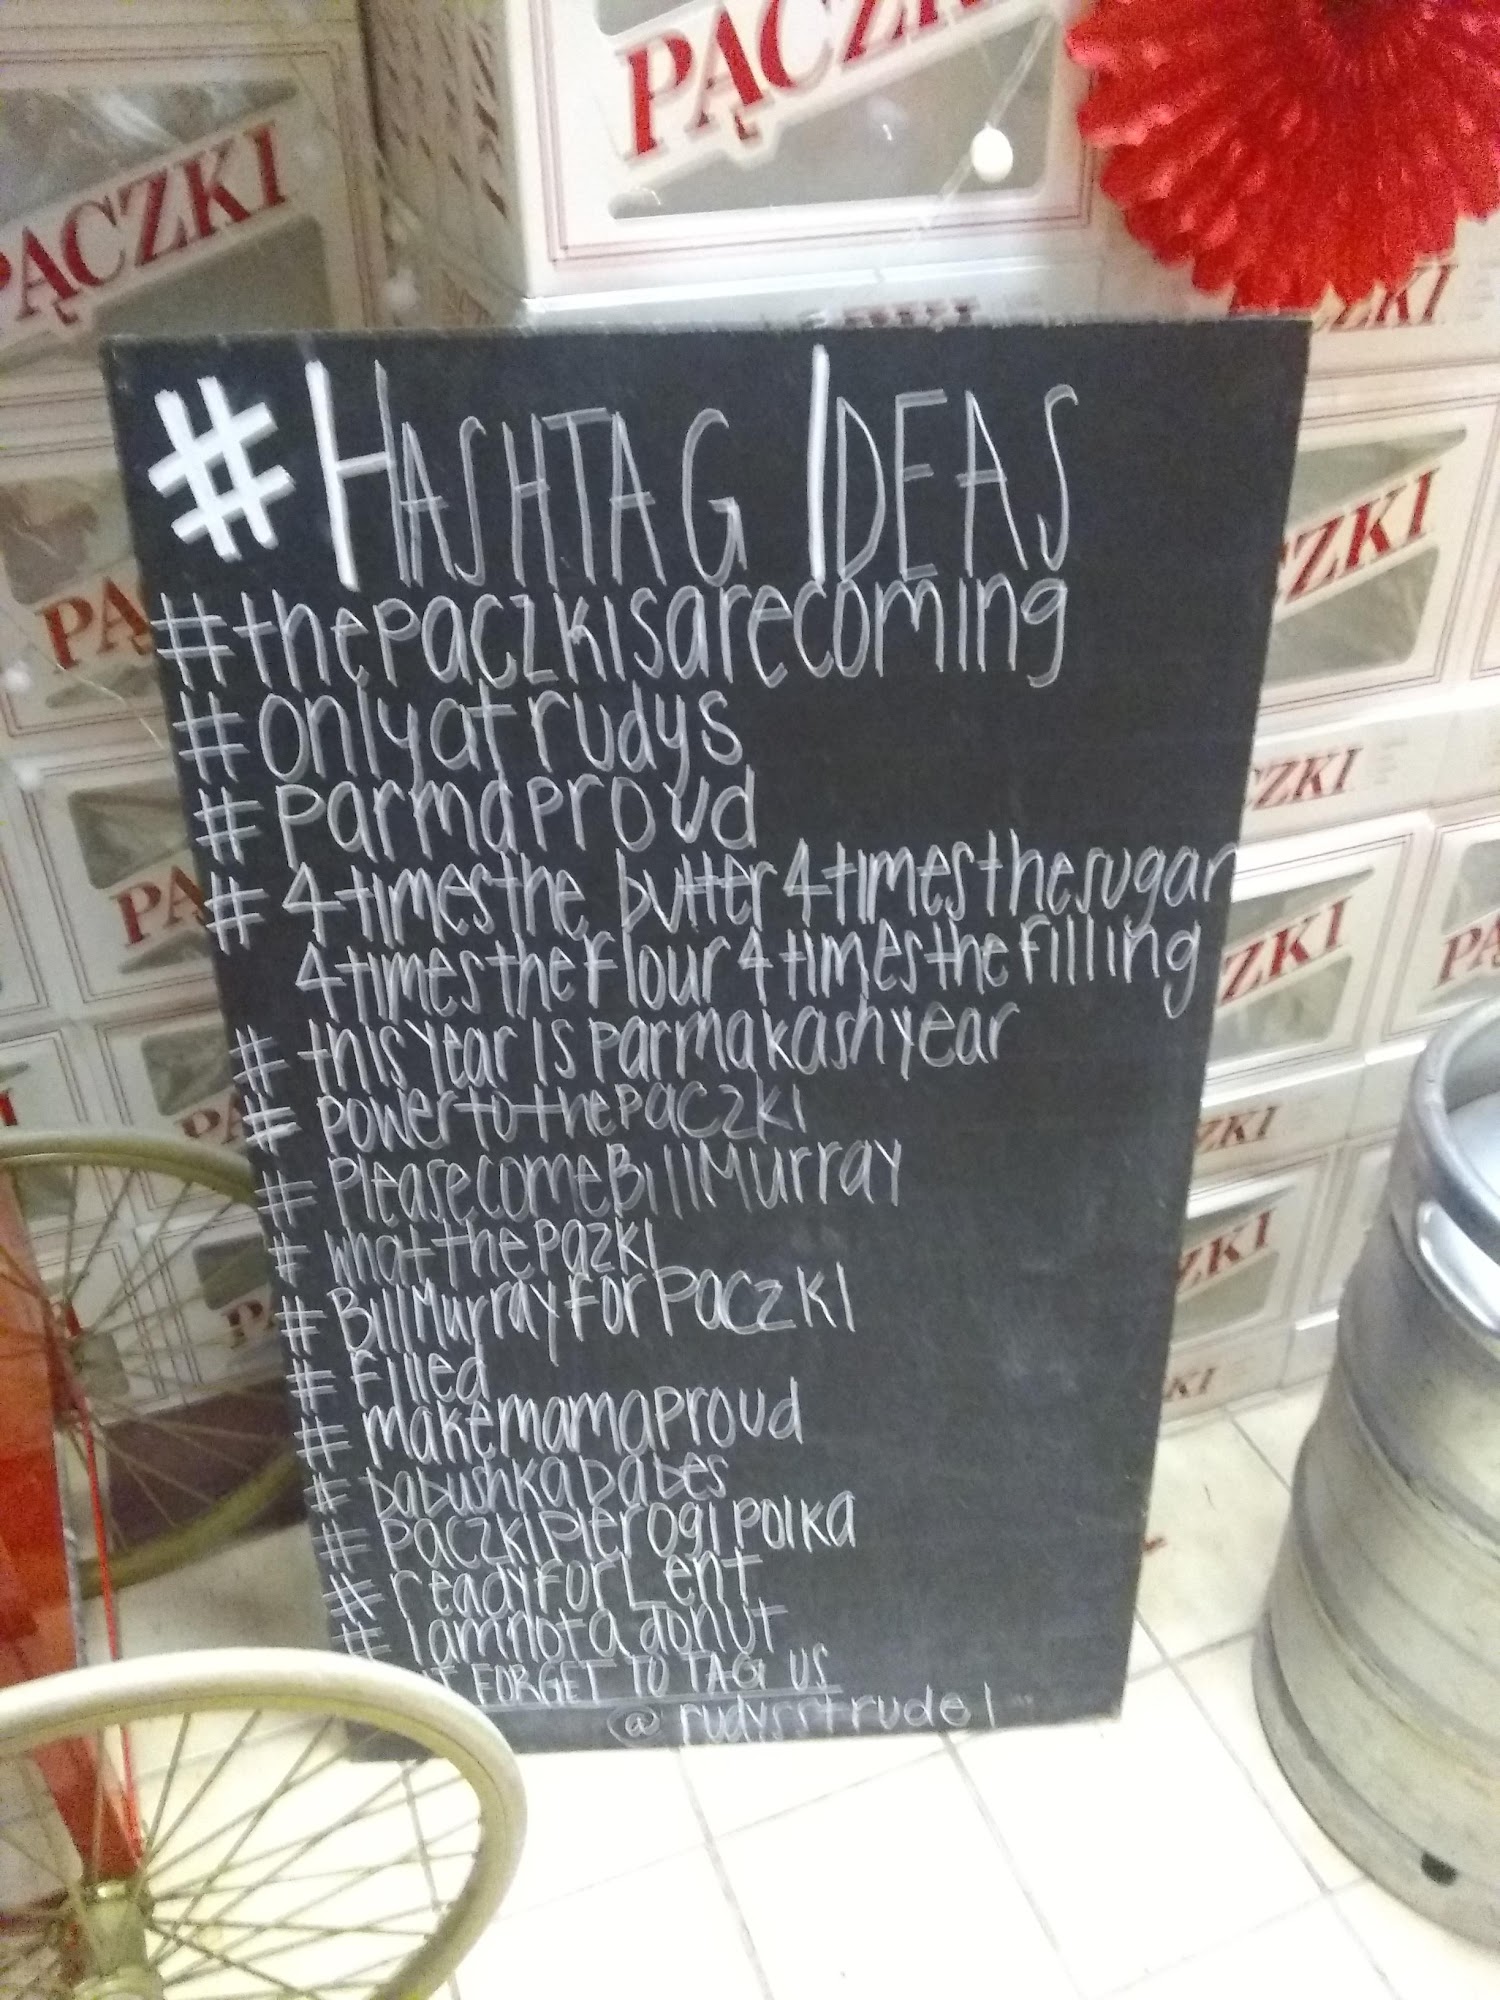 PĄCZKI
PĄCZKI
# HASHTAG IDEAS
#thepaczkisarecoming
#onlyatrudys
#parmaproud
# 4timesthe butter 4timesthesugar
4timestheflour 4timesthefilling
# thisyear is parmakashyear
# powertothepaczki
# PleasecomeBillMurray
# whatthepazki
# BillMurrayforPaczki
# filled
# makemamaproud
# babushkababes
# paczkipierogipolka
# readyforLent
# Iamnotadonut
FORGET TO TAG US
@rudysstrudel